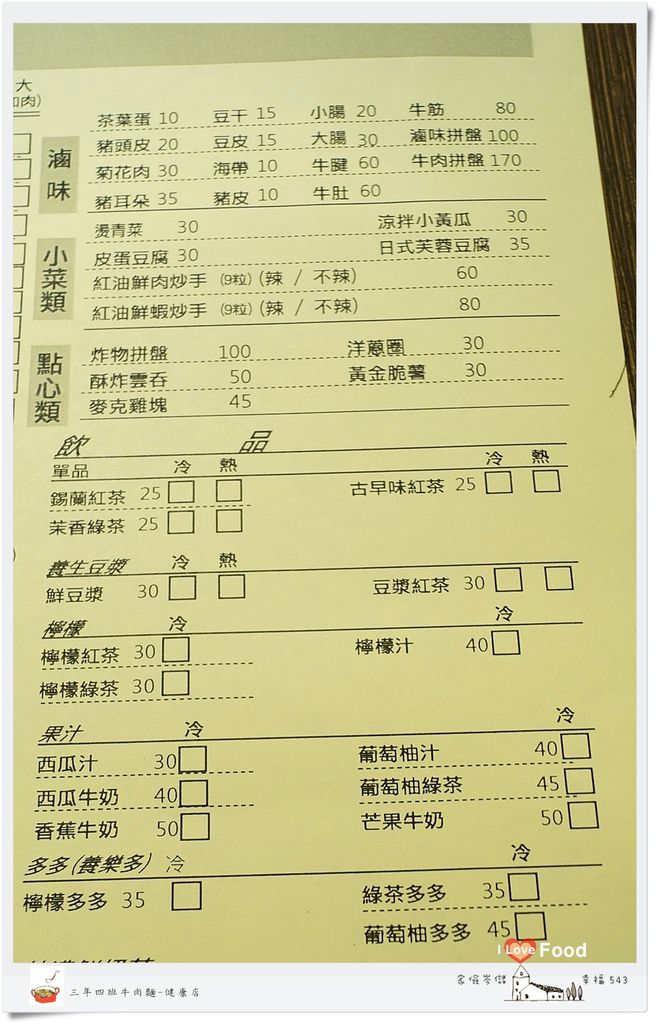 大
加肉)
滷味
茶葉蛋 10 豆干 15 小腸 20 牛筋 80
豬頭皮 20 豆皮 15 大腸 30 滷味拼盤 100
菊花肉 30 海帶 10 牛腱 60 牛肉拼盤 170
豬耳朵 35 豬皮 10 牛肚 60
小菜類
燙青菜 30 涼拌小黃瓜 30
皮蛋豆腐 30 日式芙蓉豆腐 35
紅油鮮肉炒手 (9粒) (辣 / 不辣) 60
紅油鮮蝦炒手 (9粒) (辣 / 不辣) 80
點心類
炸物拼盤 100 洋蔥圈 30
酥炸雲吞 50 黃金脆薯 30
麥克雞塊 45
飲品
單品 冷 熱 冷 熱
錫蘭紅茶 25 古早味紅茶 25
茉香綠茶 25
養生豆漿 冷 熱
鮮豆漿 30 豆漿紅茶 30
檸檬 冷 冷
檸檬紅茶 30 檸檬汁 40
檸檬綠茶 30
果汁 冷 冷
西瓜汁 30 葡萄柚汁 40
西瓜牛奶 40 葡萄柚綠茶 45
香蕉牛奶 50 芒果牛奶 50
多多(養樂多) 冷 冷
檸檬多多 35 綠茶多多 35
葡萄柚多多 45
I Love Food
三年四班牛肉麵-健康店
幸福 543